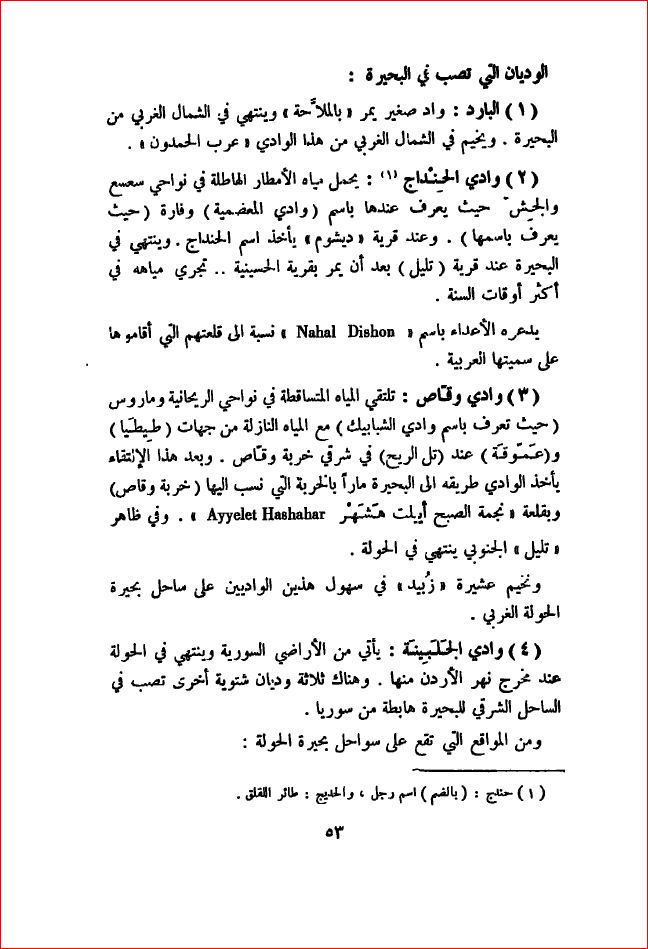 الوديان التي تصب في البحيرة :
(١) البارد : واد صغير يمر « بالملاَّحة » وينتهي في الشمال الغربي من
البحيرة . ويخيم في الشمال الغربي من هذا الوادي « عرب الحمدون » .
(٢) وادي الحِنْداج (١) : يحمل مياه الأمطار الهاطلة في نواحي سعسع
والجيش حيث يعرف عندها باسم (وادي المعضمية) وفارة (حيث
يعرف باسمها) . وعند قرية « ديشوم » يأخذ اسم الحنداج . وينتهي في
البحيرة عند قرية (تليل) بعد أن يمر بقرية الحسينية .. تجري مياهه في
أكثر أوقات السنة .
يدعره الأعداء باسم « Nahal Dishon » نسبة الى قلعتهم التي أقاموها
على سميتها العربية .
(٣) وادي وقّاص : تلتقي المياه المتساقطة في نواحي الريحانية وماروس
(حيث تعرف باسم وادي الشبابيك) مع المياه النازلة من جهات (طَيطَبا)
و(عَمّوقة) عند (تل الريح) في شرقي خربة وقّاص . وبعد هذا الإلتقاء
يأخذ الوادي طريقه الى البحيرة ماراً بالخربة التي نسب اليها (خربة وقاص)
وبقلعة « نجمة الصبح أيلت هَشَهَرْ Ayyelet Hashahar » . وفي ظاهر
« تليل » الجنوبي ينتهي في الحولة .
وتخيم عشيرة « زُبيد » في سهول هذين الواديين على ساحل بحيرة
الحولة الغربي .
(٤) وادي الجَلَبينة : يأتي من الأراضي السورية وينتهي في الحولة
عند مخرج نهر الأردن منها . وهناك ثلاثة وديان شتوية أخرى تصب في
الساحل الشرقي للبحيرة هابطة من سوريا .
ومن المواقع التي تقع على سواحل بحيرة الحولة :
(١) حندج : (بالضم) اسم رجل ، والحديج : طائر اللقلق .
٥٣